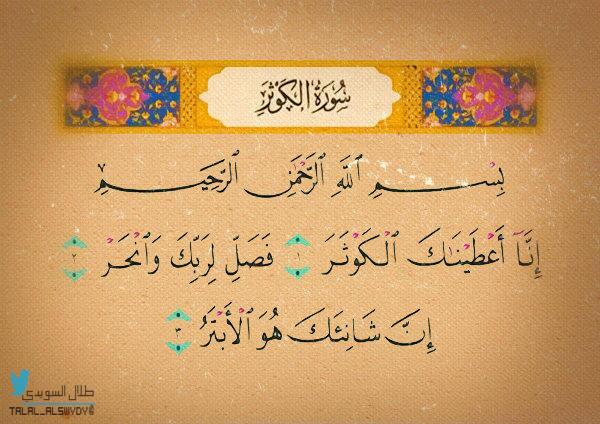 سُورَةُ الْكَوْثَرِ
بِسْمِ ٱللَّهِ ٱلرَّحْمَٰنِ ٱلرَّحِيمِ
إِنَّآ أَعْطَيْنَٰكَ ٱلْكَوْثَرَ ١ فَصَلِّ لِرَبِّكَ وَٱنْحَرْ ٢
إِنَّ شَانِئَكَ هُوَ ٱلْأَبْتَرُ ٣
طلال السويدي
TALAL_ALSWYDY©